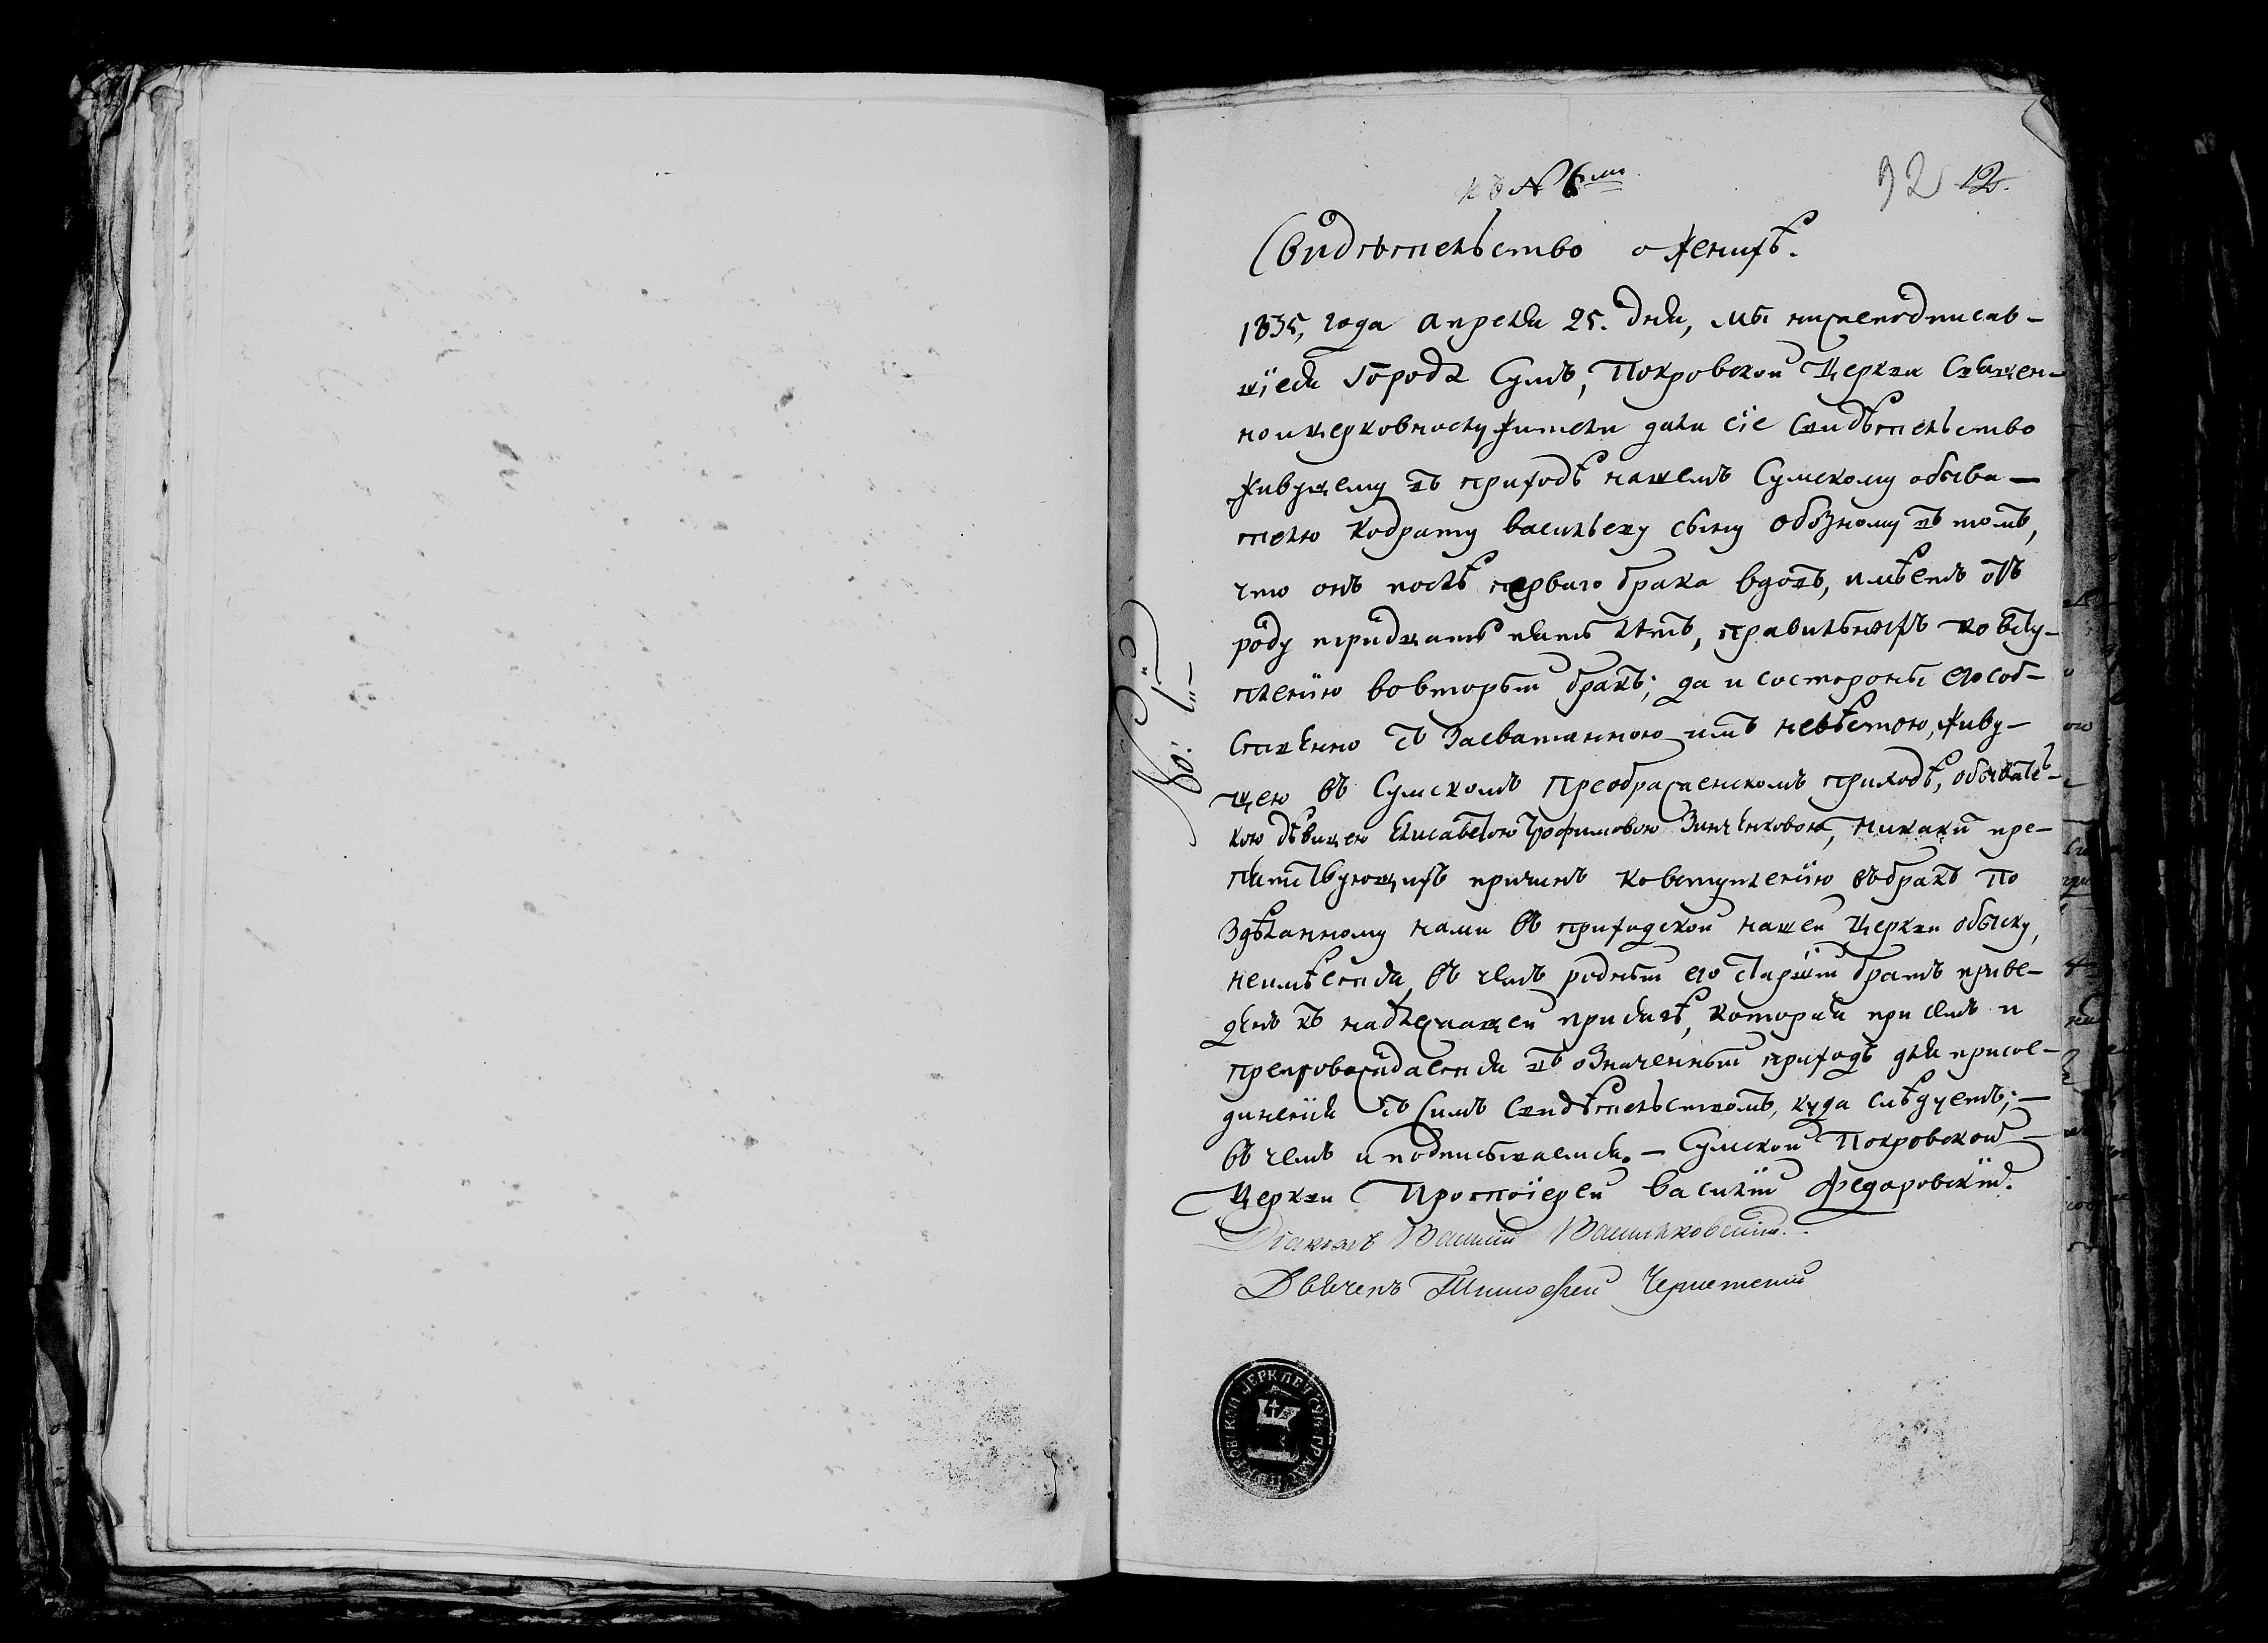 къ № 6му
32 12.
Свидѣтельство о женихѣ.
1835, года апреля 25. дня, мы нижеподписав-
шіеся Города Сумъ, Покровской Церкви Священ-
ноицерковнослужители дали сіе свидѣтельство
живущему въ приходѣ нашемъ Сумскому обыва-
телю Кодрату васильеву сыну Обозному въ томъ,
что онъ послѣ перваго брака вдовъ, имѣетъ отъ
роду тридцать пять лѣтъ, правильныхъ ко всту-
пленію вовторый бракъ; да и состороны его соб-
ственно съ засватанною имъ невѣстою, живу-
щею въ Сумскомъ Преображенскомъ приходѣ, обыватель-
кою дѣвицею Елисаветою Трофимовою Зинченковою, никакихъ пре-
пятствующихъ причинъ ковступленію въбракъ по
здѣланному нами въ приходской нашей Церкви обыску,
неимѣется, въ чемъ родный его старшій братъ приве-
денъ къ надлежащей присягѣ, который при семъ и
препровождается въ означенный приходъ для присое-
диненія съ симъ свидѣтельствомъ, куда слѣдуетъ; —
въ чемъ и подписываемся. — Сумской Покровской
Церкви Протоіерей Василій Федоровскій.
Діаконъ Василій Васильковскій.
Дьячекъ Тимофей
№: 15й